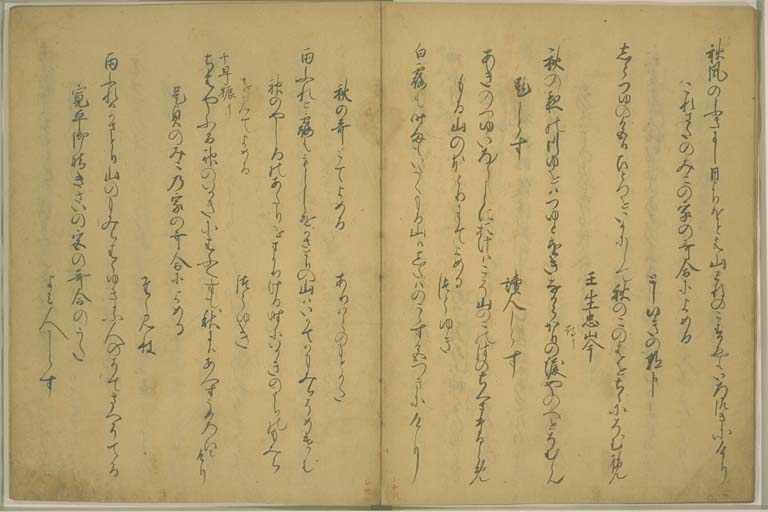 秋風のふきにし日よりおとは山みねのこすゑも色つきにけり
これさたのみこの家の哥合によめる
としゆきの朝臣
しらつゆの色はひとつをいかにして秋のこのはをちゝにそむらん
壬生忠岑
秋の夜のつゆをはつゆとおきなからかりの涙やのへをそむらん
題しらす
讀人しらす
あきのつゆいろ〳〵ことにおけはこそ山のこのはのちくさなるらめ
もる山のほとりにてよめる
つらゆき
白露も時雨もいたくもる山はしたはのこらす色つきにけり
秋の哥とてよめる
ありはらのもとかた
雨ふれと露ももらしをかさとりの山はいかてかもみちそめけむ
神のやしろのあたりをまかりける時にいかきのうちのもみち
をみてよめる
つらゆき
千早振り
ちはやふる神のいかきにはふくすも秋にはあへすうつろひにけり
是貞のみこの家の哥合によめる
たゝみね
雨ふれはかさとり山のもみちはゝゆきかふ人のそてさへそてる
寛平御時きさいの宮の哥合のうた
よみ人しらす